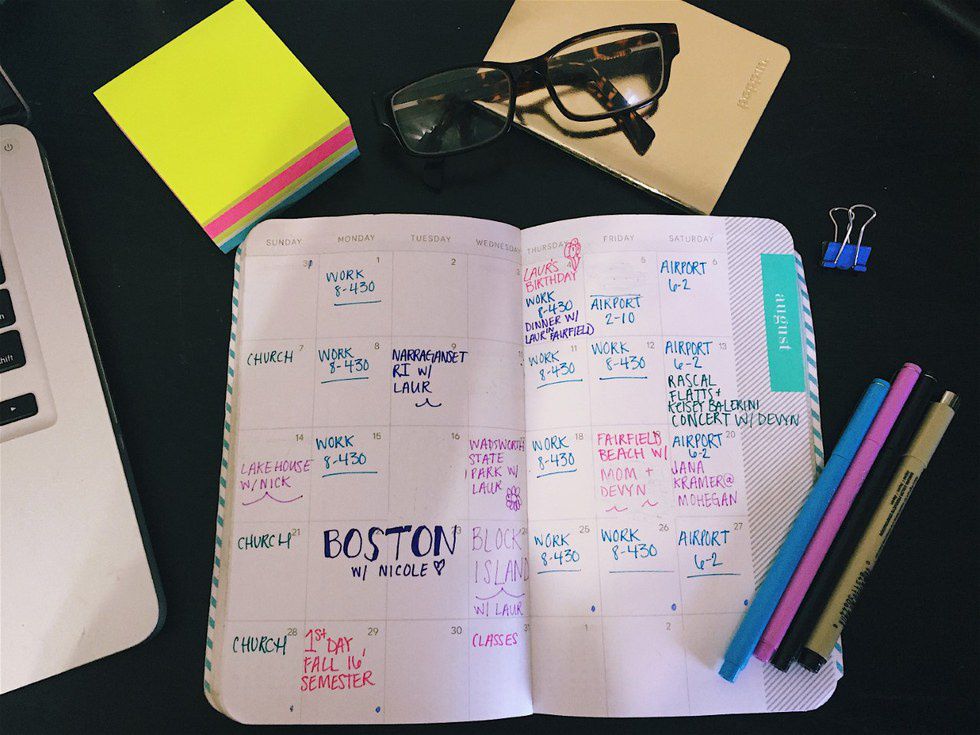 SUNDAY MONDAY TUESDAY WEDNESDAY THURSDAY FRIDAY SATURDAY
august
31
1
WORK
8-430
2
LAUR'S
BIRTHDAY
4
WORK
8-430
DINNER W/
LAUR IN FAIRFIELD
5
AIRPORT
2-10
6
AIRPORT
6-2
CHURCH
7
8
WORK
8-430
9
NARRAGANSET
RI W/
LAUR
11
WORK
8-430
12
WORK
8-430
13
AIRPORT
6-2
RASCAL
FLATTS +
KELSEY BALERINI
CONCERT W/ DEVYN
14
LAKE HOUSE
W/ NICK
15
WORK
8-430
16
WADSWORTH
STATE
PARK W/
LAUR
18
WORK
8-430
FAIRFIELD
BEACH W/
MOM +
DEVYN
20
AIRPORT
6-2
JANA
KRAMER @
MOHEGAN
21
CHURCH
BOSTON
W/ NICOLE
23
24
BLOCK
ISLAND
W/ LAUR
25
WORK
8-430
26
WORK
8-430
27
AIRPORT
6-2
28
CHURCH
29
1ST DAY
FALL 16'
SEMESTER
30
31
CLASSES
1
2
Shift